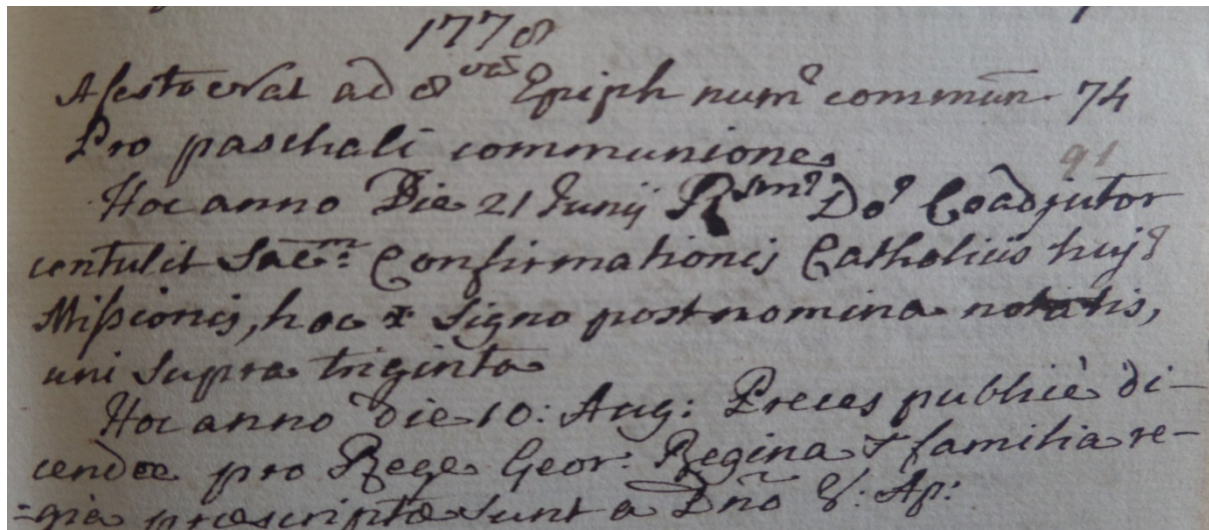 1778
A festo Nat ad 8vas Epiph num9 commun 74
Pro paschali communione 91
Hoc anno Die 21 Junij Rsm9 Do9 Coadjutor
contulit Sacm: Confirmationis Catholicis huj9
Missionis, hoc x Signo post nomina notatis,
uni supra triginta
Hoc anno die 10: Aug: Preces publicè di-
cendae pro Rege Geor: Regina & familia re-
=gia praescriptae sunt a Dño V: Ap: